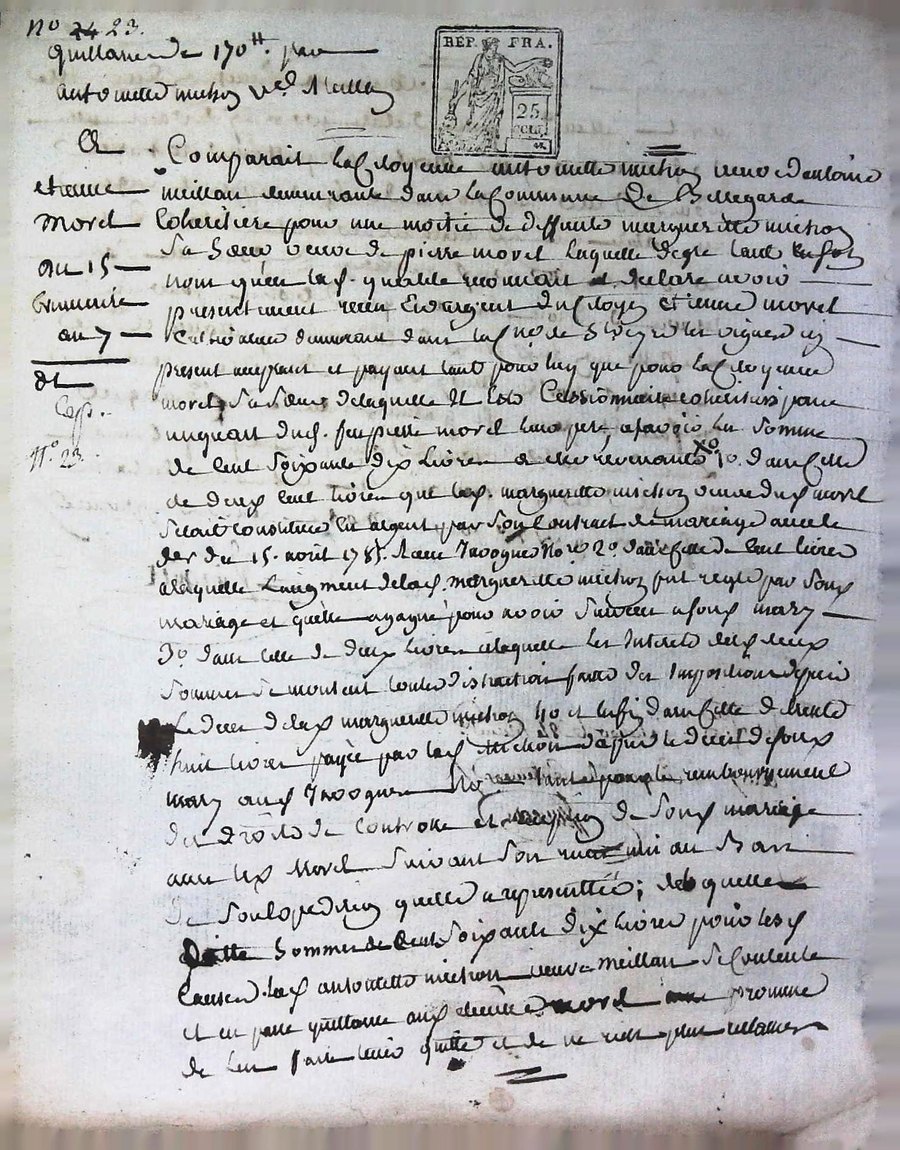 No 24 23.
Quittance de 170# par
antoinette michon ve. Meillan
REP. FRA.
25
CENT.
A
etienne
Morel
du 15
brumaire
an 7
dt
Exp.
No. 23
Comparait la Citoyenne antoinette michon veuve d'antoine
meillan demeurante dans la Commune de Bellegarde
Coheritiere pour une moitié de deffunte marguerite michon
Sa Sœur veuve de pierre morel laquelle de gré tant en son
nom qu'en lad. qualité reconnait et declare avoir
presentement reçu en argent du Citoyen Etienne morel
Cultivateur demeurant dans la Cne. de St. Cyr les vignes ici
present acceptant et payant tant pour luy que pour la Citoyenne
morel Sa Sœur de laquelle il est Cessionnaire coheritiers pour
un quart dud. feu pierre morel leur pere a savoir la Somme
de Cent Soixante dix livres revenante 1o. dans celle
de deux Cent livres que lad. marguerite michon veuve dud. morel
S'etait Constituée en argent par Son Contract de mariage avec le
du 15. aout 1785. Reçu No. re 2o. dans celle de Cent livres
a laquelle l'augment de lad. marguerite michon fut reglé par Sond.
mariage et qu'elle a gagné pour avoir Survecu a Sond. mary
3o. dans celle de deux livres a laquelle les Interets desd. deux
Sommes Se montent toute distraction faite des Impositions depuis
le deces de lad. marguerite michon 4o. et enfin dans celle de trente
huit livres payée par lad. Michon depuis le deces de Sond.
mary aud. No. pour le remboursement
des droits de Controlle et de Sond. mariage
avec led. Morel Suivant Son reçu mis au Bas
de qu'elle a representée; de laquelle
Somme de Cent Soixante dix livres pour lesd.
Causes. lad. antoinette michon veuve meillan Se Contente
et en passe quittance aud. etienne morel promet
de l'en faire tenir quitte et de ne rien plus reclamer